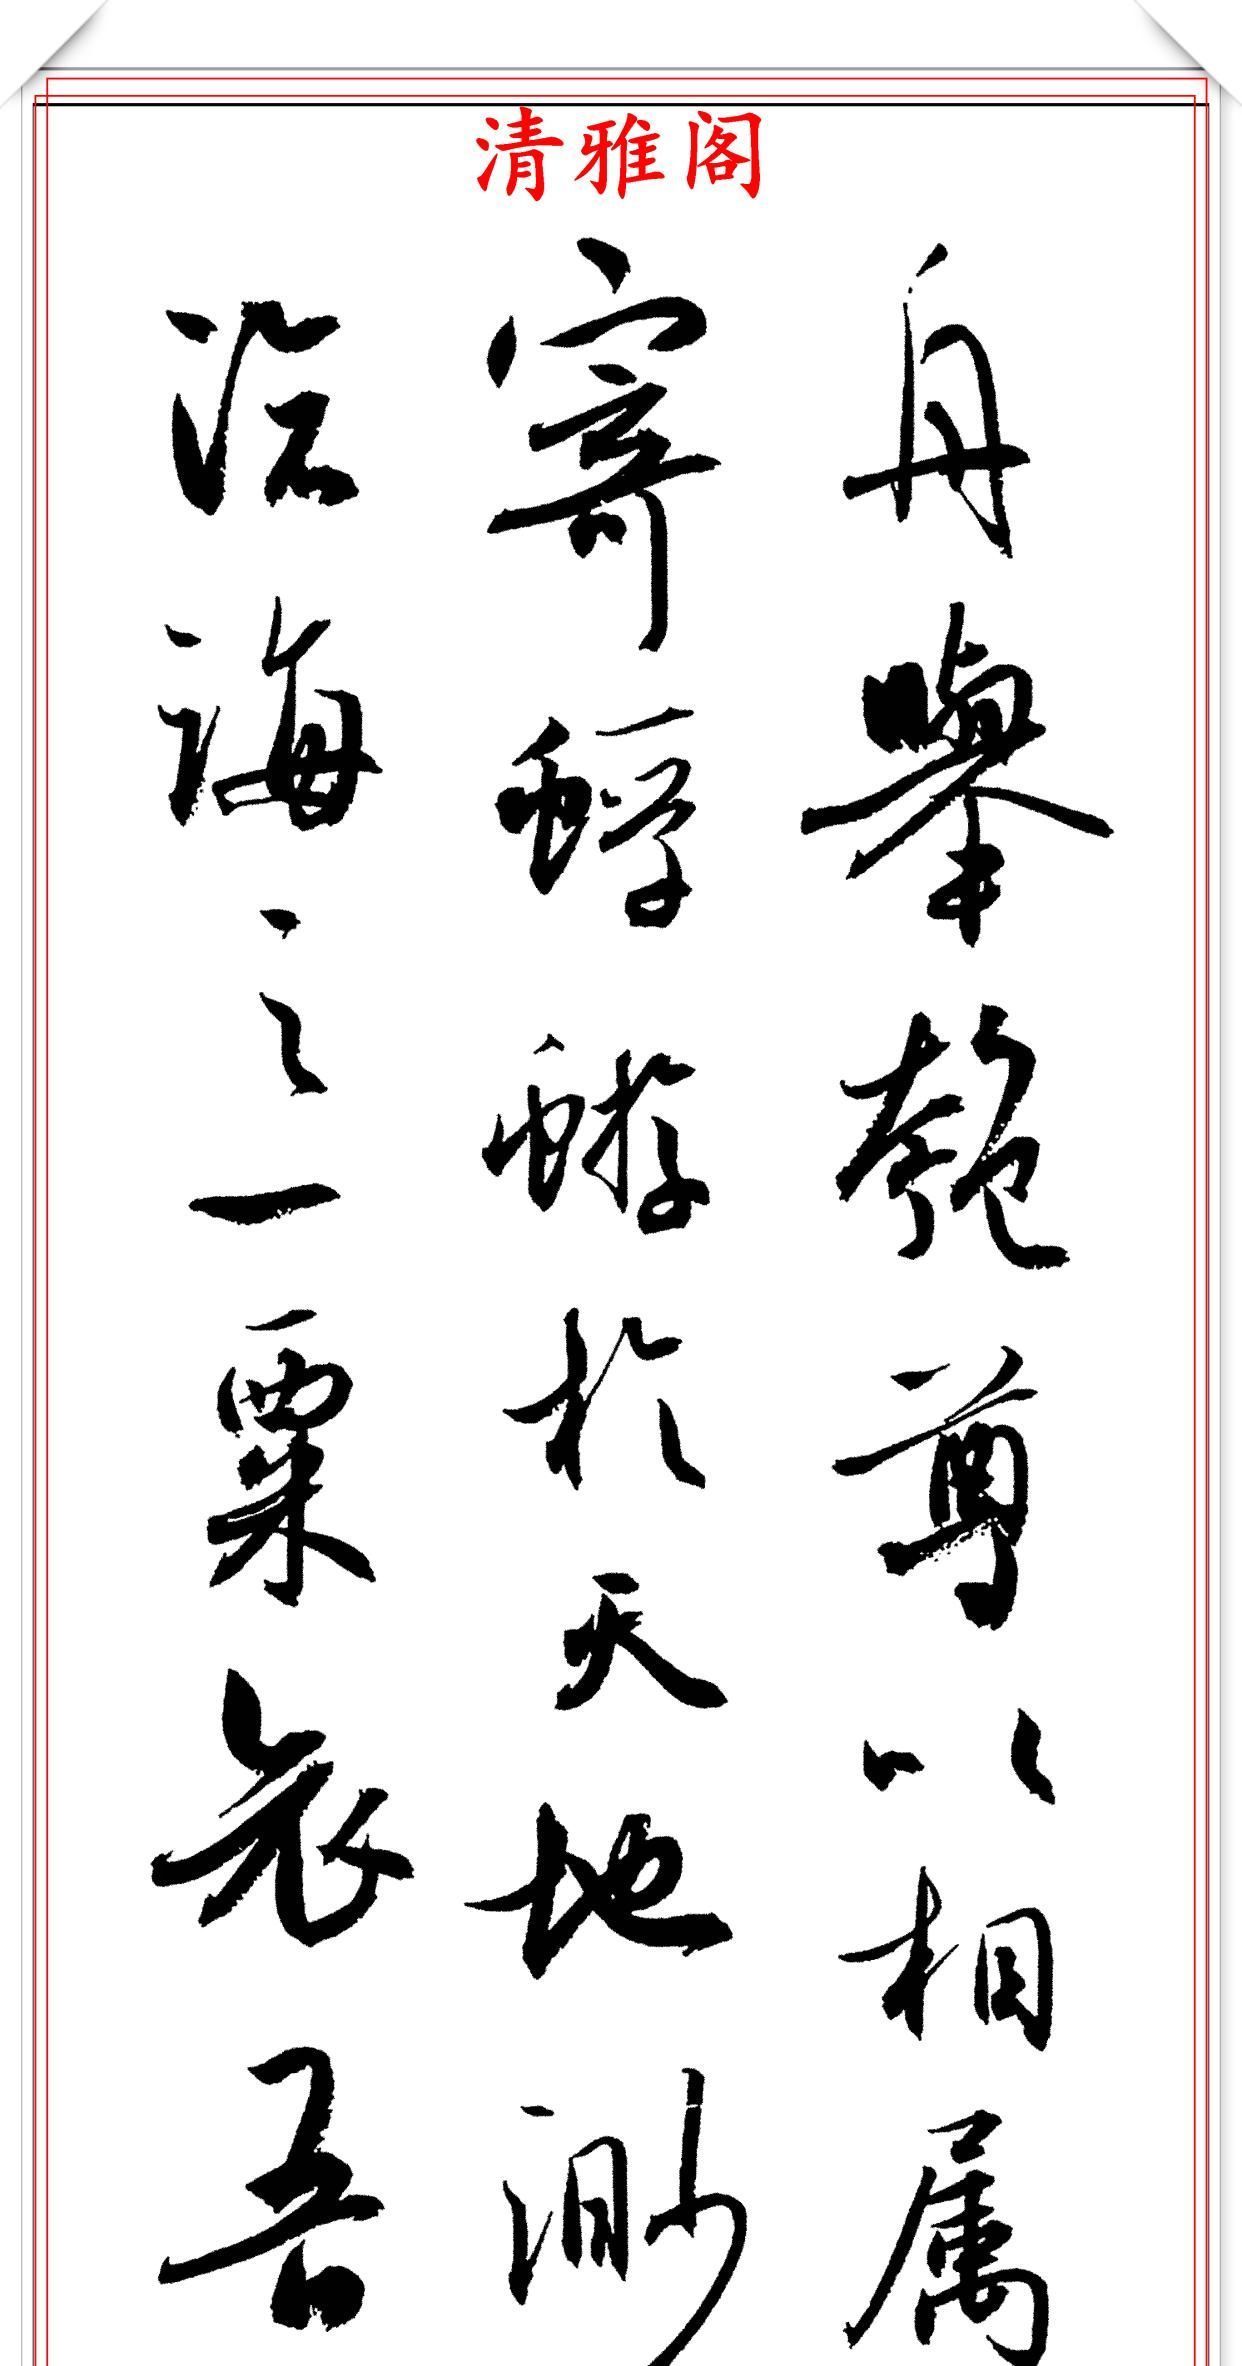 清雅阁
舟舉匏尊以相属
寄蜉蝣於天地渺
滄海之一粟哀吾